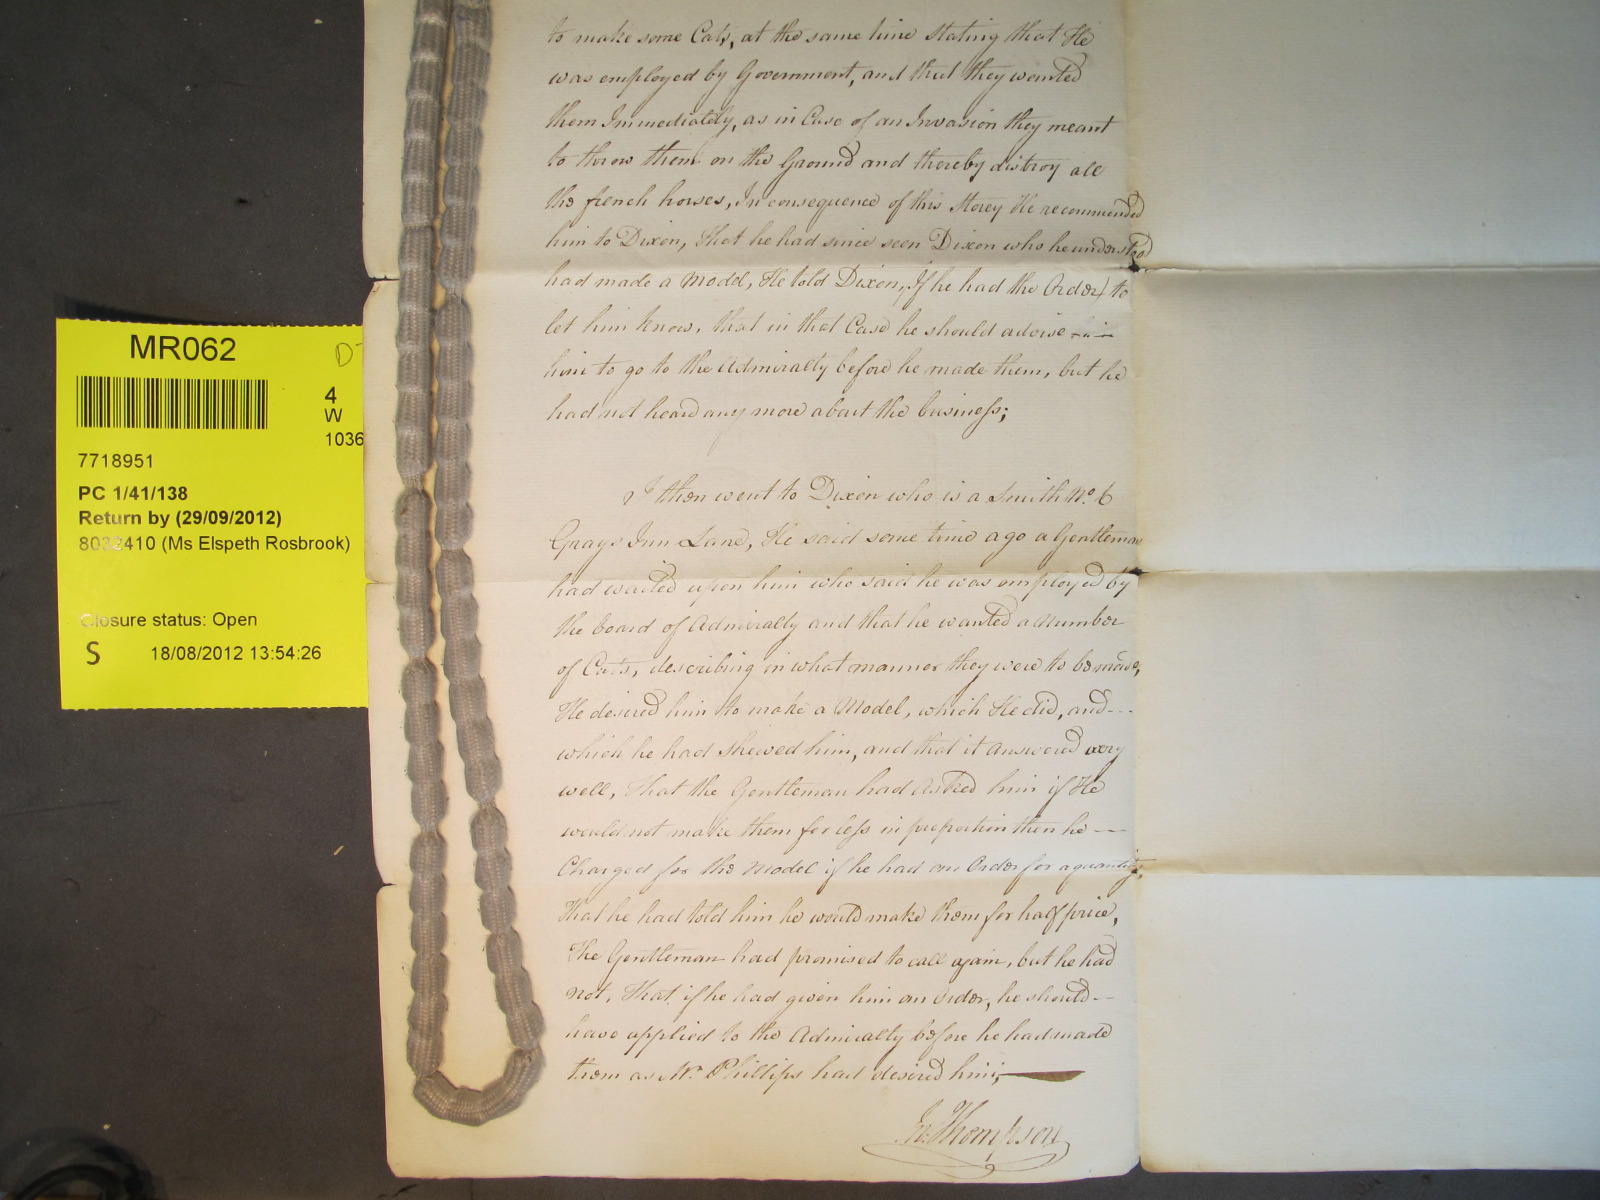 to make some Cats, at the same time stating that He
was employed by Government, and that they wanted
them Immediately, as in Case of an Invasion they meant
to throw them on the Ground and thereby distroy all
the french horses, In consequence of this Storey He recommended
him to Dixon, That he had since seen Dixon who he understood
had made a Model, He told Dixon, If he had the Order to
let him know, that in that Case he should advise
him to go to the Admiralty before he made them, but he
had not heard any more about the business;
I then went to Dixon who is a Smith No. 6
Grays Inn Lane, He said some time ago a Gentleman
had waited upon him who said he was employed by
the board of Admiralty and that he wanted a Number
of Cats, describing in what manner they were to be made,
He desired him to make a Model, which He did, and
which he had shewed him, and that it answered very
well, That the Gentleman had Asked him if He
would not make them for less in proportion then he
Charged for the Model if he had an Order for a quantity,
That he had told him he would make them for half price,
The Gentleman had promised to call again, but he had
not, That if he had given him an Order, he should
have applied to the Admiralty before he had made
them as Mr. Phillips had desired him;
Jn. Thompson
MR062
4
W
1036
7718951
PC 1/41/138
Return by (29/09/2012)
410 (Ms Elspeth Rosbrook)
Closure status: Open
S 18/08/2012 13:54:26